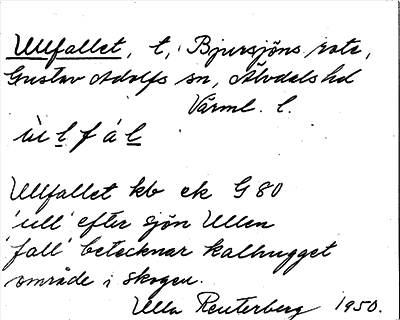 Ullfallet, t, Bjursjöns rote,
Gustav Adolfs sn, Älvdals hd
Värml. l.
ùl f á l
Ullfallet kb ek G 80
'ull' efter sjön Ullen
'fall' betecknar kalhugget
område i skogen.
Ulla Reuterberg 1950.